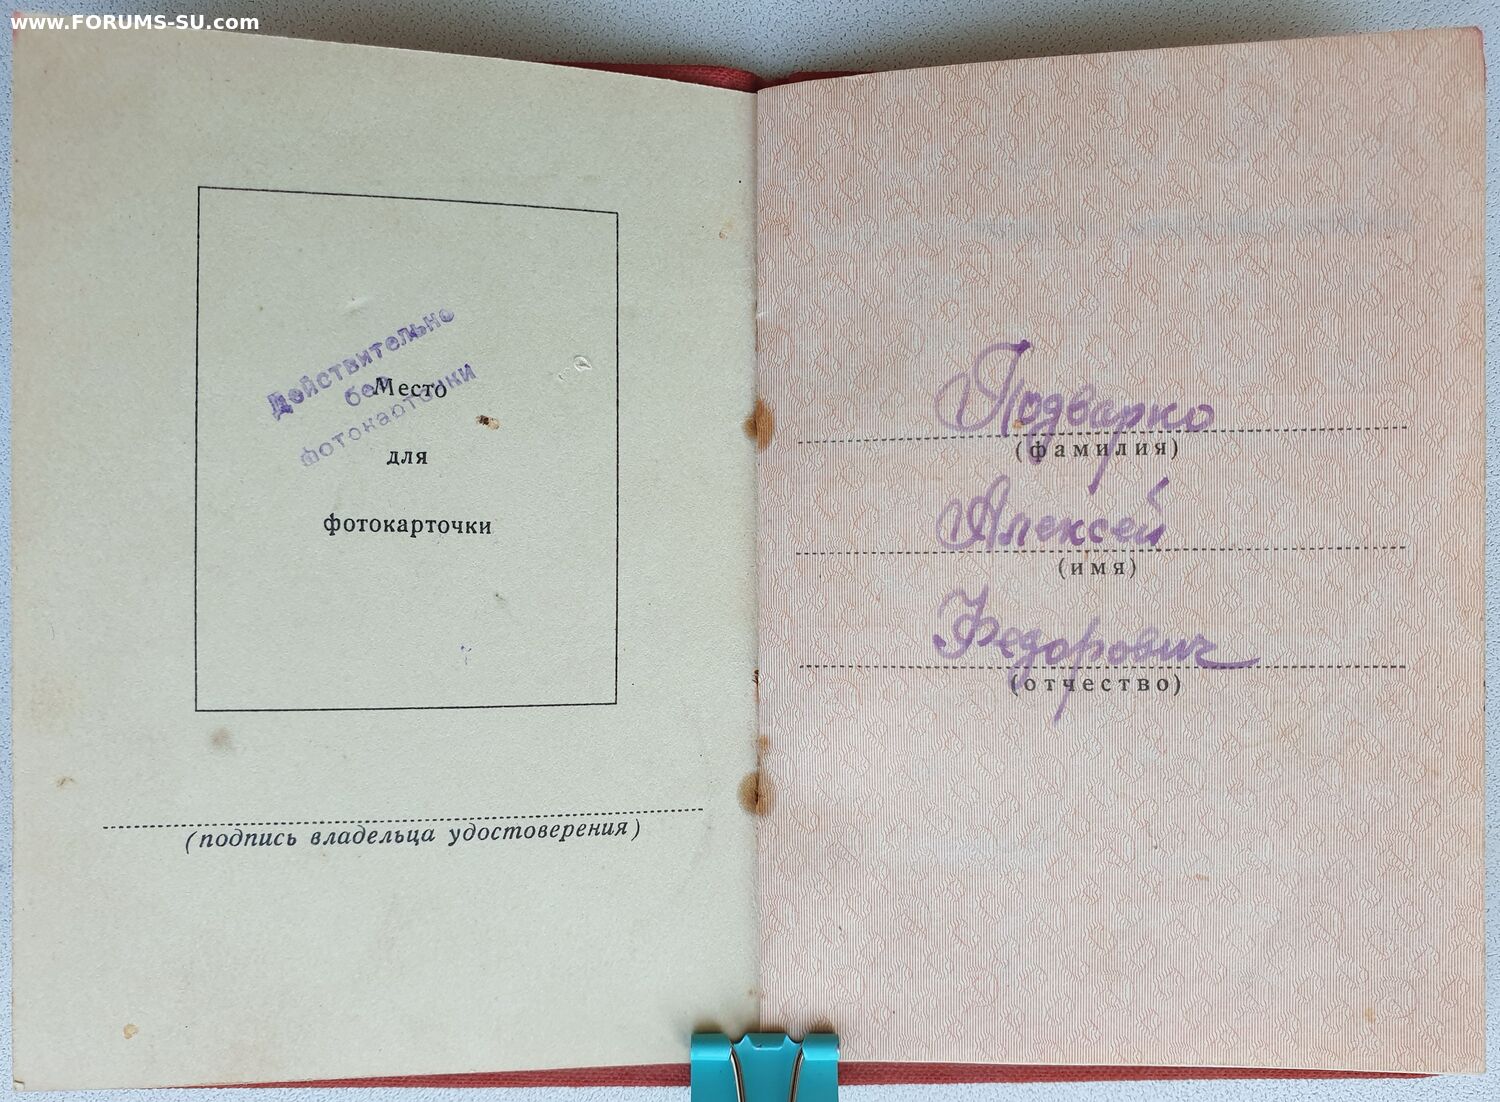 www.FORUMS-SU.com
Действительно
без
фотокарточки
Место
для
фотокарточки
(подпись владельца удостоверения)
Подварко
(фамилия)
Алексей
(имя)
Федорович
(отчество)